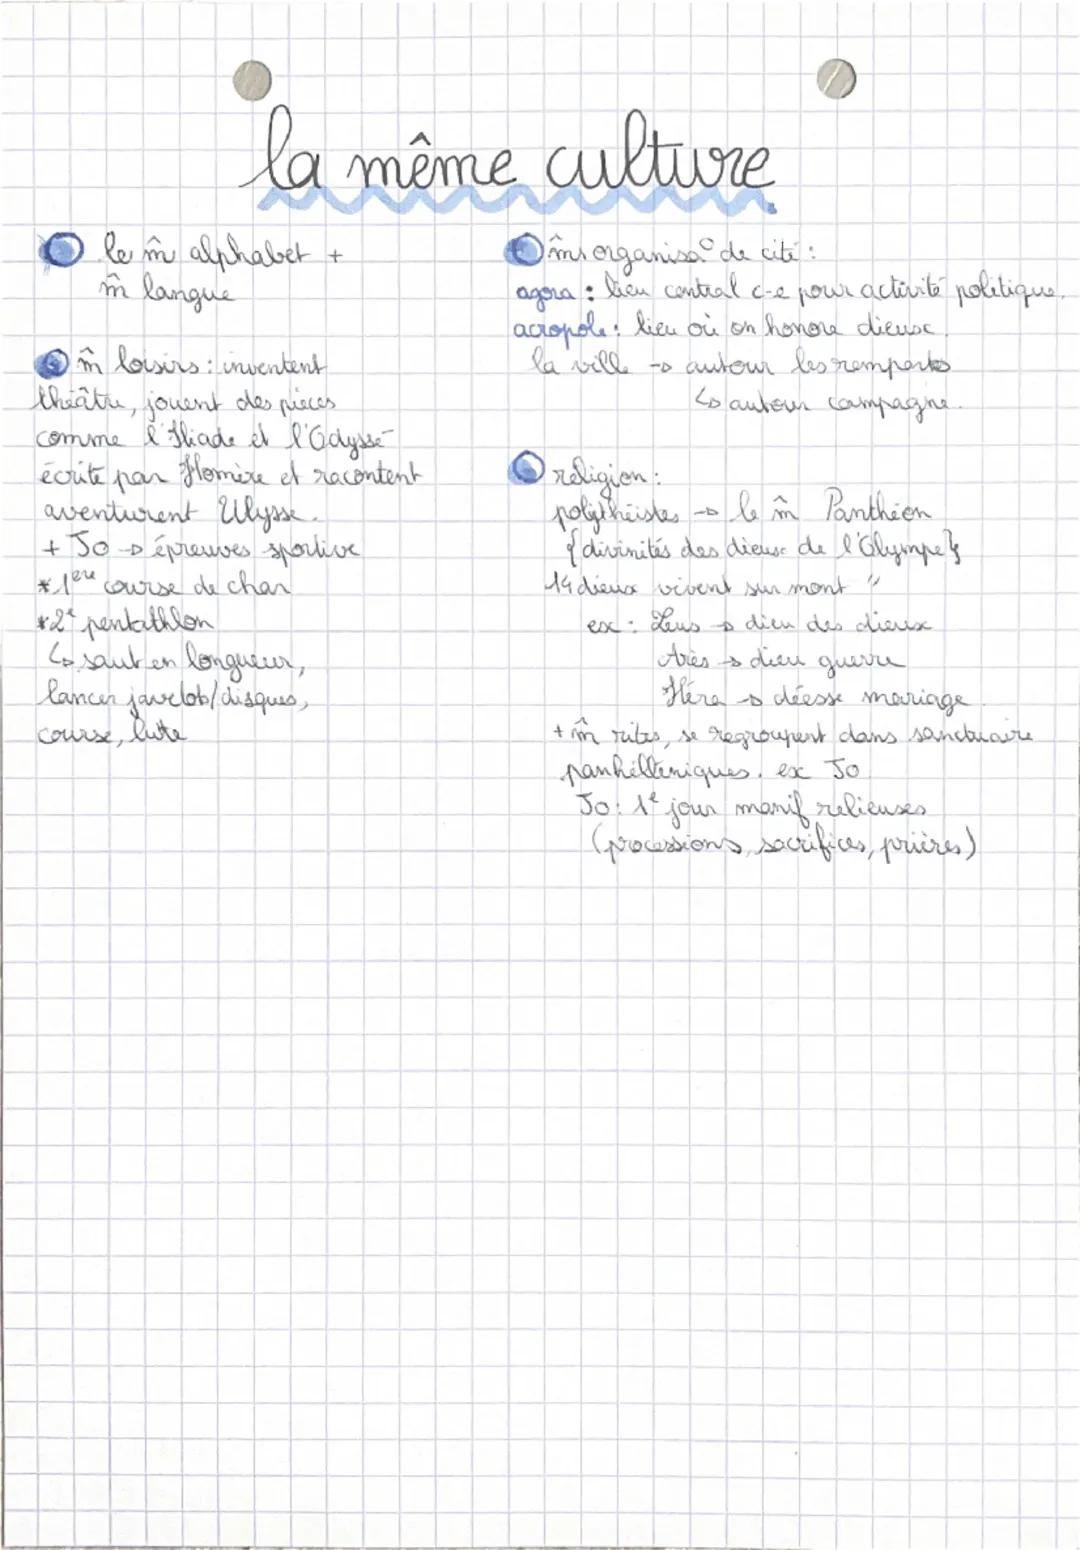 la même culture
le m̂ alphabet +
m̂ langue
m̂ loisirs : inventent
théâtre, jouent des pièces
comme l'Iliade et l'Odyssé
écrite par Homère et racontent
aventurent Ulysse.
+ Jo → épreuves sportive
*1ère course de char
*2e pentathlon
↳ saut en longueur,
lancer javelot/disques,
course, lutte
m̂ organisa° de cité :
agora : lieu central c-e pour activité politique.
acropole : lieu où on honore dieux.
la ville → autour les remparts
↳ autour campagne.
religion :
polythéistes → le m̂ Panthéon
{divinités des dieux de l'Olympe}
14 dieux vivent sur mont "
ex : Zeus → dieu des dieux
Arès → dieu guerre
Héra → déesse mariage.
+ m̂ rites, se regroupent dans sanctuaire
panhélleniques. ex Jo.
Jo : 1e jour manif relieuses
(processions, sacrifices, prières)